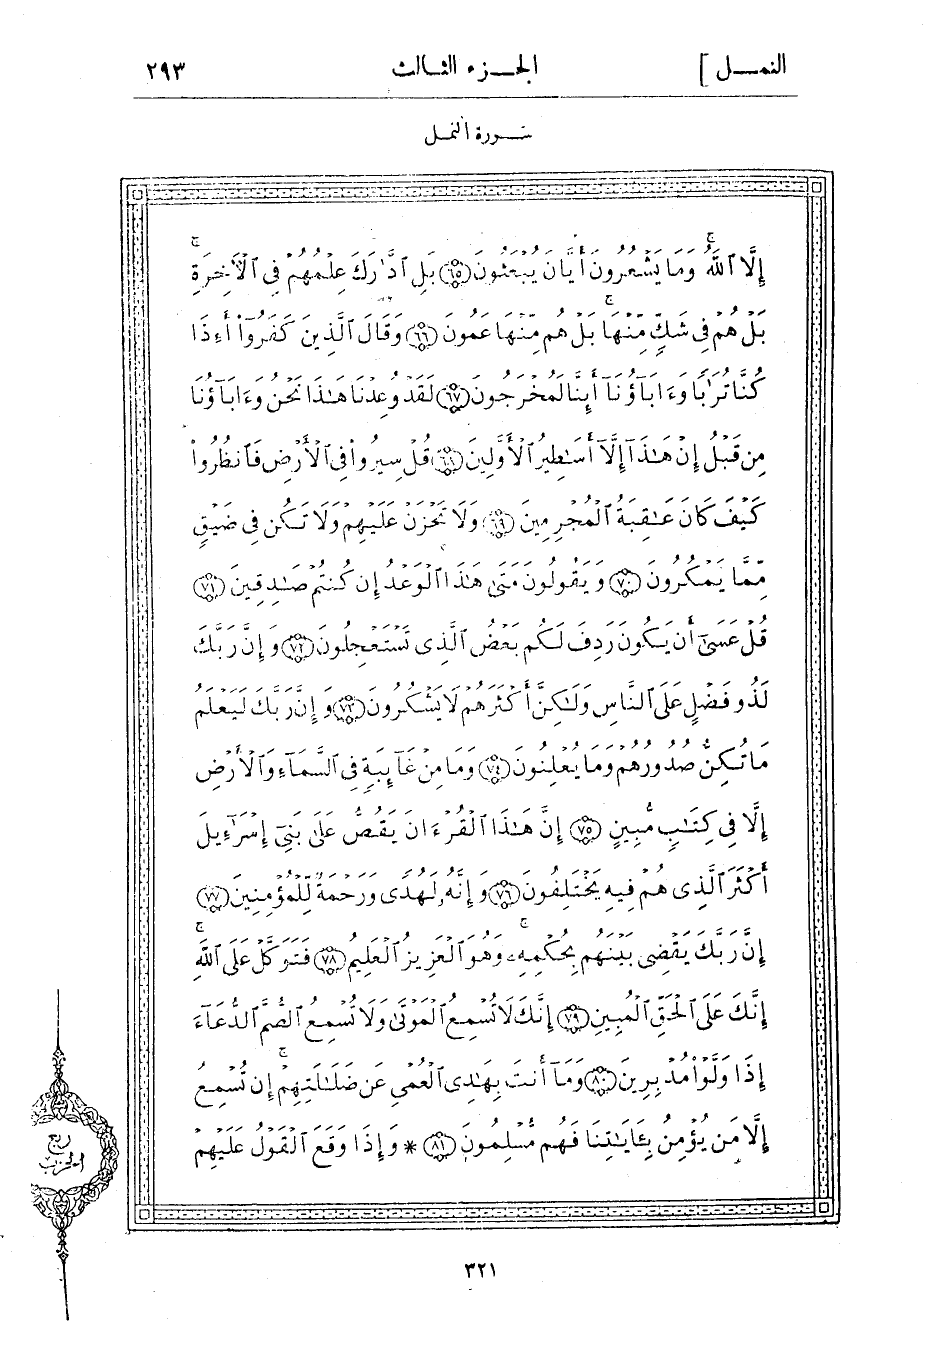 النمـــل ] الجـــزء الثـالث ٢٩٣
سـورة النمل
إِلَّا ٱللَّهُ وَمَا يَشْعُرُونَ أَيَّانَ يُبْعَثُونَ ﴿٦٥﴾ بَلِ ٱدَّٰرَكَ عِلْمُهُمْ فِى ٱلْأَخِرَةِ
بَلْ هُمْ فِى شَكٍّ مِّنْهَا بَلْ هُم مِّنْهَا عَمُونَ ﴿٦٦﴾ وَقَالَ ٱلَّذِينَ كَفَرُوٓا۟ أَءِذَا
كُنَّا تُرَٰبًا وَءَابَآؤُنَآ أَئِنَّا لَمُخْرَجُونَ ﴿٦٧﴾ لَقَدْ وُعِدْنَا هَٰذَا نَحْنُ وَءَابَآؤُنَا
مِن قَبْلُ إِنْ هَٰذَآ إِلَّآ أَسَٰطِيرُ ٱلْأَوَّلِينَ ﴿٦٨﴾ قُلْ سِيرُوا۟ فِى ٱلْأَرْضِ فَٱنظُرُوا۟
كَيْفَ كَانَ عَٰقِبَةُ ٱلْمُجْرِمِينَ ﴿٦٩﴾ وَلَا تَحْزَنْ عَلَيْهِمْ وَلَا تَكُن فِى ضَيْقٍ
مِّمَّا يَمْكُرُونَ ﴿٧٠﴾ وَيَقُولُونَ مَتَىٰ هَٰذَا ٱلْوَعْدُ إِن كُنتُمْ صَٰدِقِينَ ﴿٧١﴾
قُلْ عَسَىٰٓ أَن يَكُونَ رَدِفَ لَكُم بَعْضُ ٱلَّذِى تَسْتَعْجِلُونَ ﴿٧٢﴾ وَإِنَّ رَبَّكَ
لَذُو فَضْلٍ عَلَى ٱلنَّاسِ وَلَٰكِنَّ أَكْثَرَهُمْ لَا يَشْكُرُونَ ﴿٧٣﴾ وَإِنَّ رَبَّكَ لَيَعْلَمُ
مَا تُكِنُّ صُدُورُهُمْ وَمَا يُعْلِنُونَ ﴿٧٤﴾ وَمَا مِنْ غَآئِبَةٍ فِى ٱلسَّمَآءِ وَٱلْأَرْضِ
إِلَّا فِى كِتَٰبٍ مُّبِينٍ ﴿٧٥﴾ إِنَّ هَٰذَا ٱلْقُرْءَانَ يَقُصُّ عَلَىٰ بَنِىٓ إِسْرَٰٓءِيلَ
أَكْثَرَ ٱلَّذِى هُمْ فِيهِ يَخْتَلِفُونَ ﴿٧٦﴾ وَإِنَّهُۥ لَهُدًى وَرَحْمَةٌ لِّلْمُؤْمِنِينَ ﴿٧٧﴾
إِنَّ رَبَّكَ يَقْضِى بَيْنَهُم بِحُكْمِهِۦ وَهُوَ ٱلْعَزِيزُ ٱلْعَلِيمُ ﴿٧٨﴾ فَتَوَكَّلْ عَلَى ٱللَّهِ
إِنَّكَ عَلَى ٱلْحَقِّ ٱلْمُبِينِ ﴿٧٩﴾ إِنَّكَ لَا تُسْمِعُ ٱلْمَوْتَىٰ وَلَا تُسْمِعُ ٱلصُّمَّ ٱلدُّعَآءَ
إِذَا وَلَّوْا۟ مُدْبِرِينَ ﴿٨٠﴾ وَمَآ أَنتَ بِهَٰدِى ٱلْعُمْىِ عَن ضَلَٰلَتِهِمْ إِن تُسْمِعُ
إِلَّا مَن يُؤْمِنُ بِـَٔايَٰتِنَا فَهُم مُّسْلِمُونَ ﴿٨١﴾ * وَإِذَا وَقَعَ ٱلْقَوْلُ عَلَيْهِمْ
ربع
الحزب
٣٢١